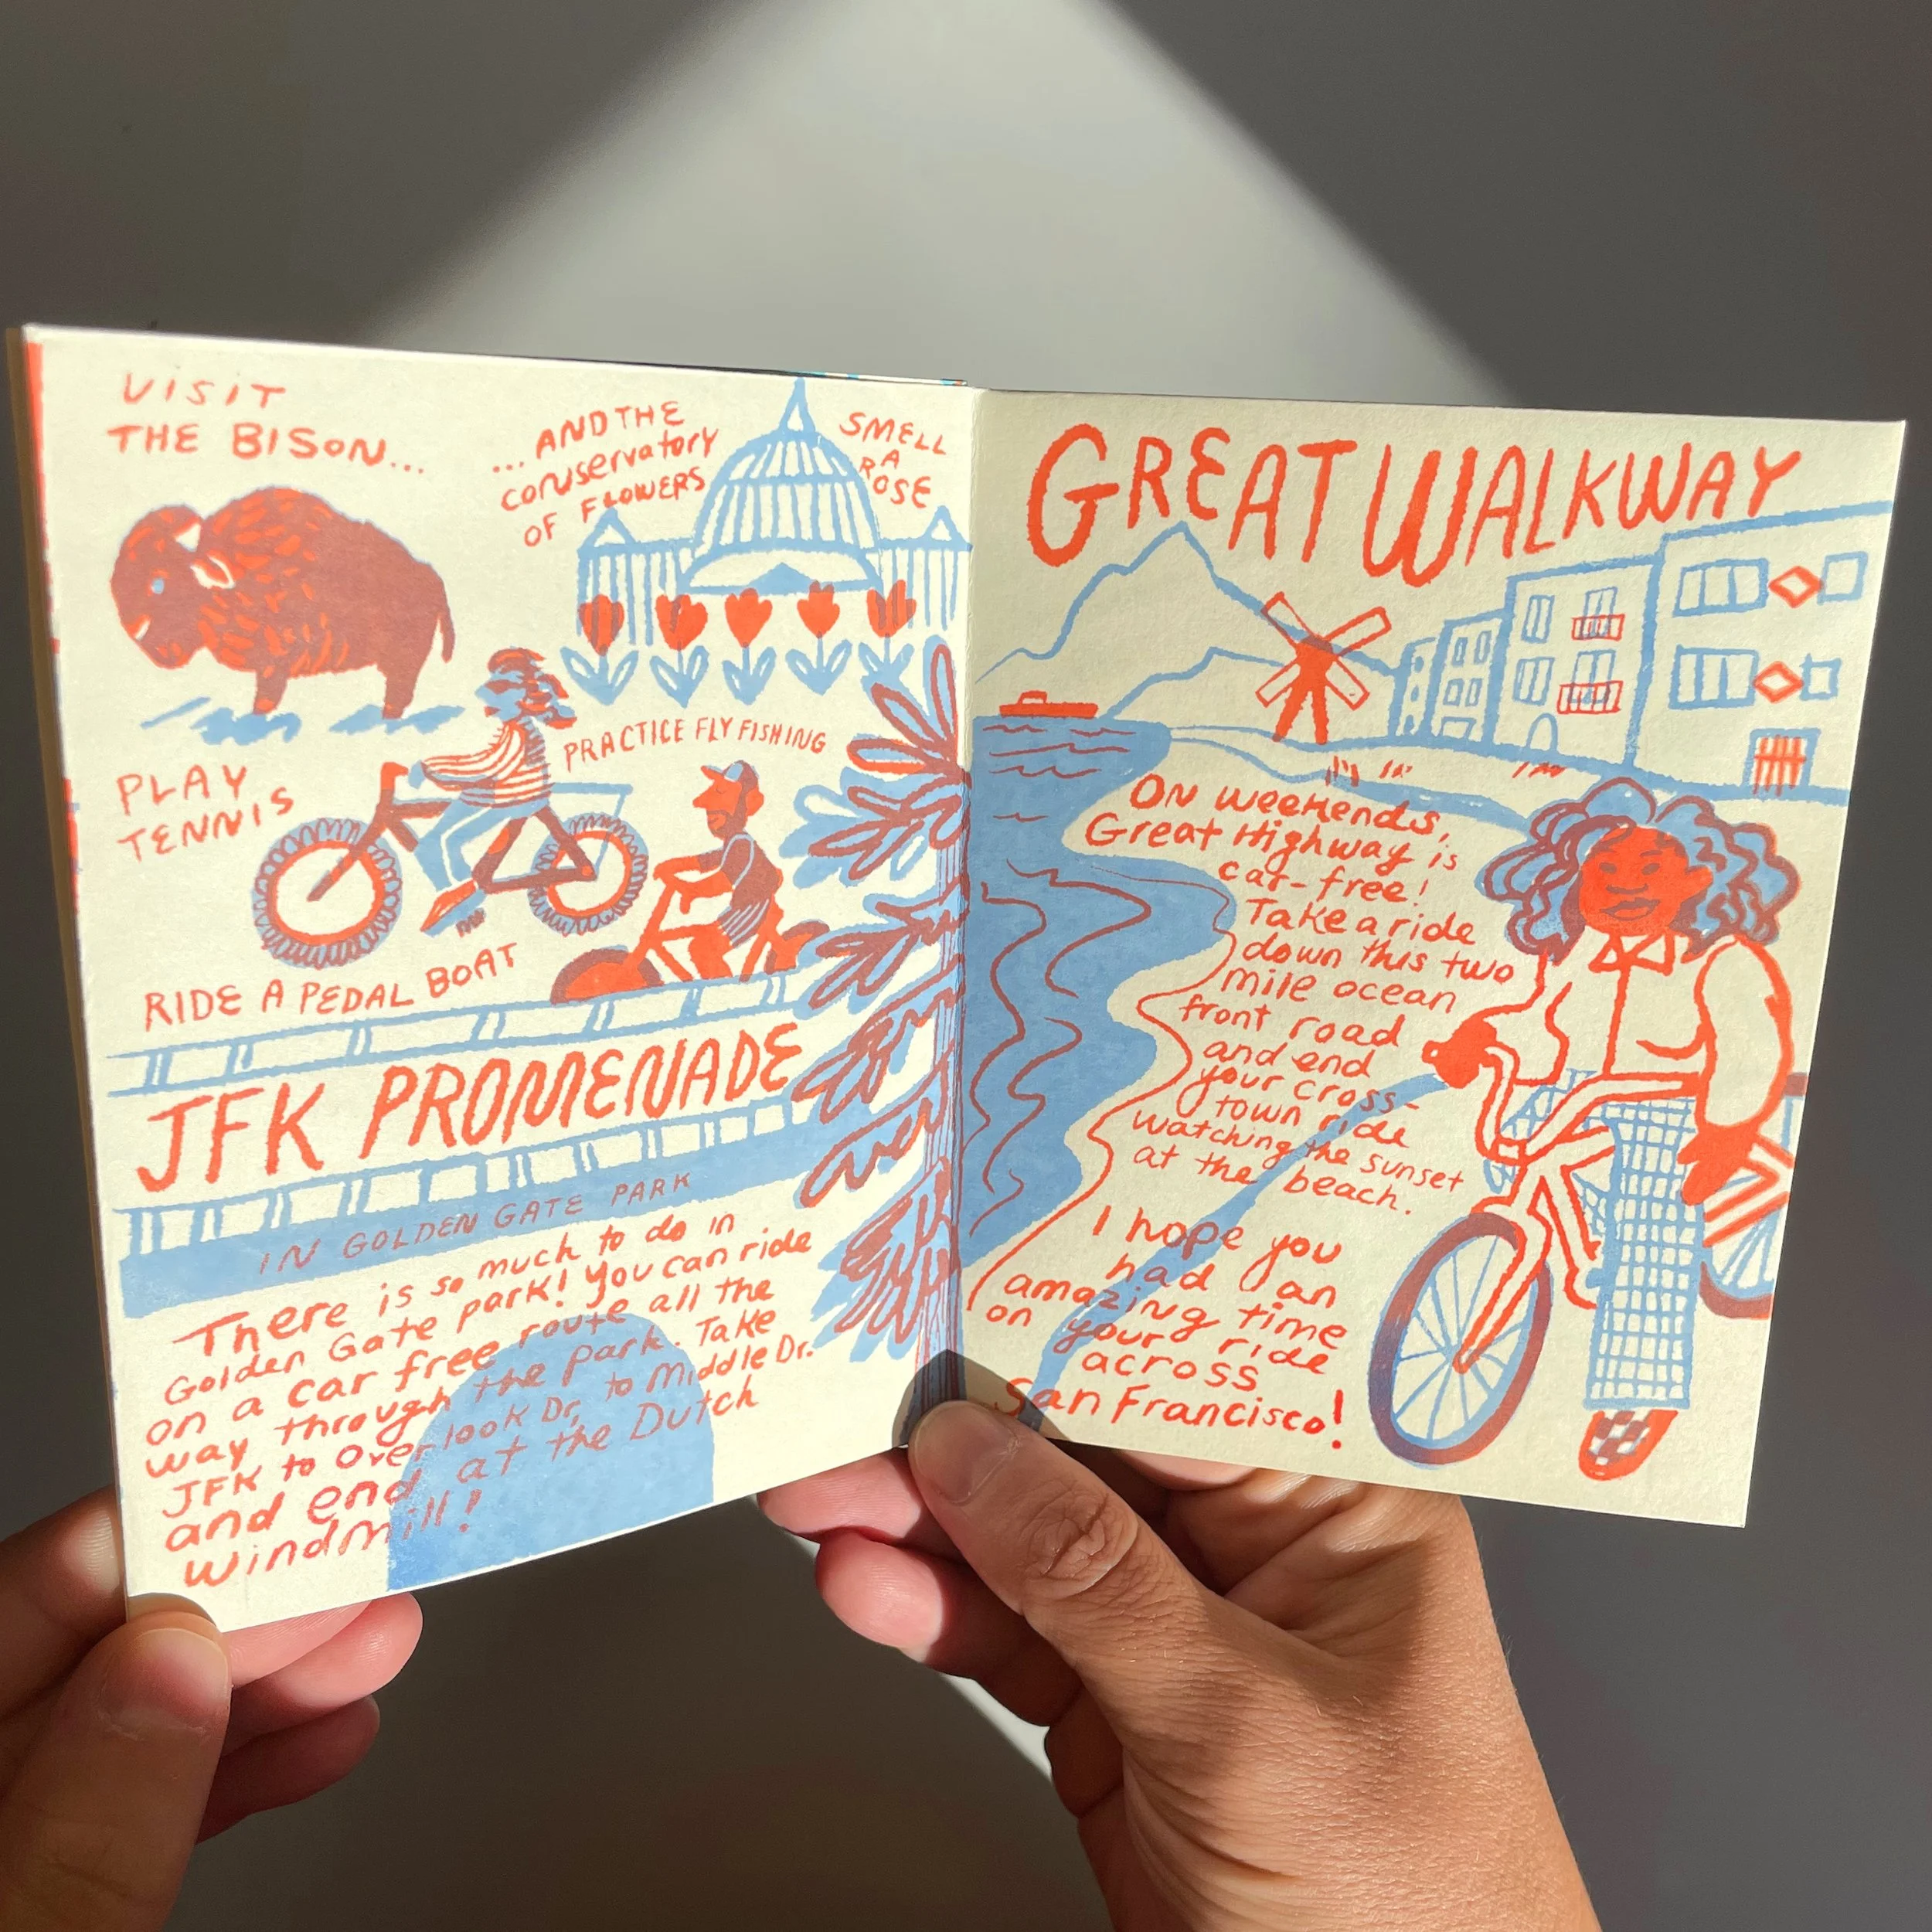 VISIT
THE BISON...
...AND THE
conservatory
OF FLOWERS
SMELL
A
ROSE
PLAY
TENNIS
PRACTICE FLY FISHING
RIDE A PEDAL BOAT
JFK PROMENADE
IN GOLDEN GATE PARK
There is so much to do in
Golden Gate park! You can ride
on a car free route all the
way through the park. Take
JFK to Overlook Dr, to Middle Dr.
and end at the Dutch
Windmill!
GREAT WALKWAY
On weekends,
Great Highway is
car-free!
Take a ride
down this two
mile ocean
front road
and end
your cross-
town ride
watching the sunset
at the beach.
I hope you
had an
amazing time
on your ride
across
San Francisco!